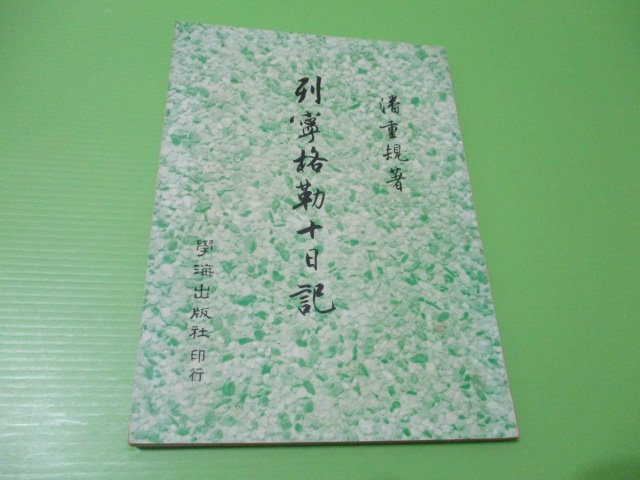 潘重規著
列寧格勒十日記
學海出版社印行